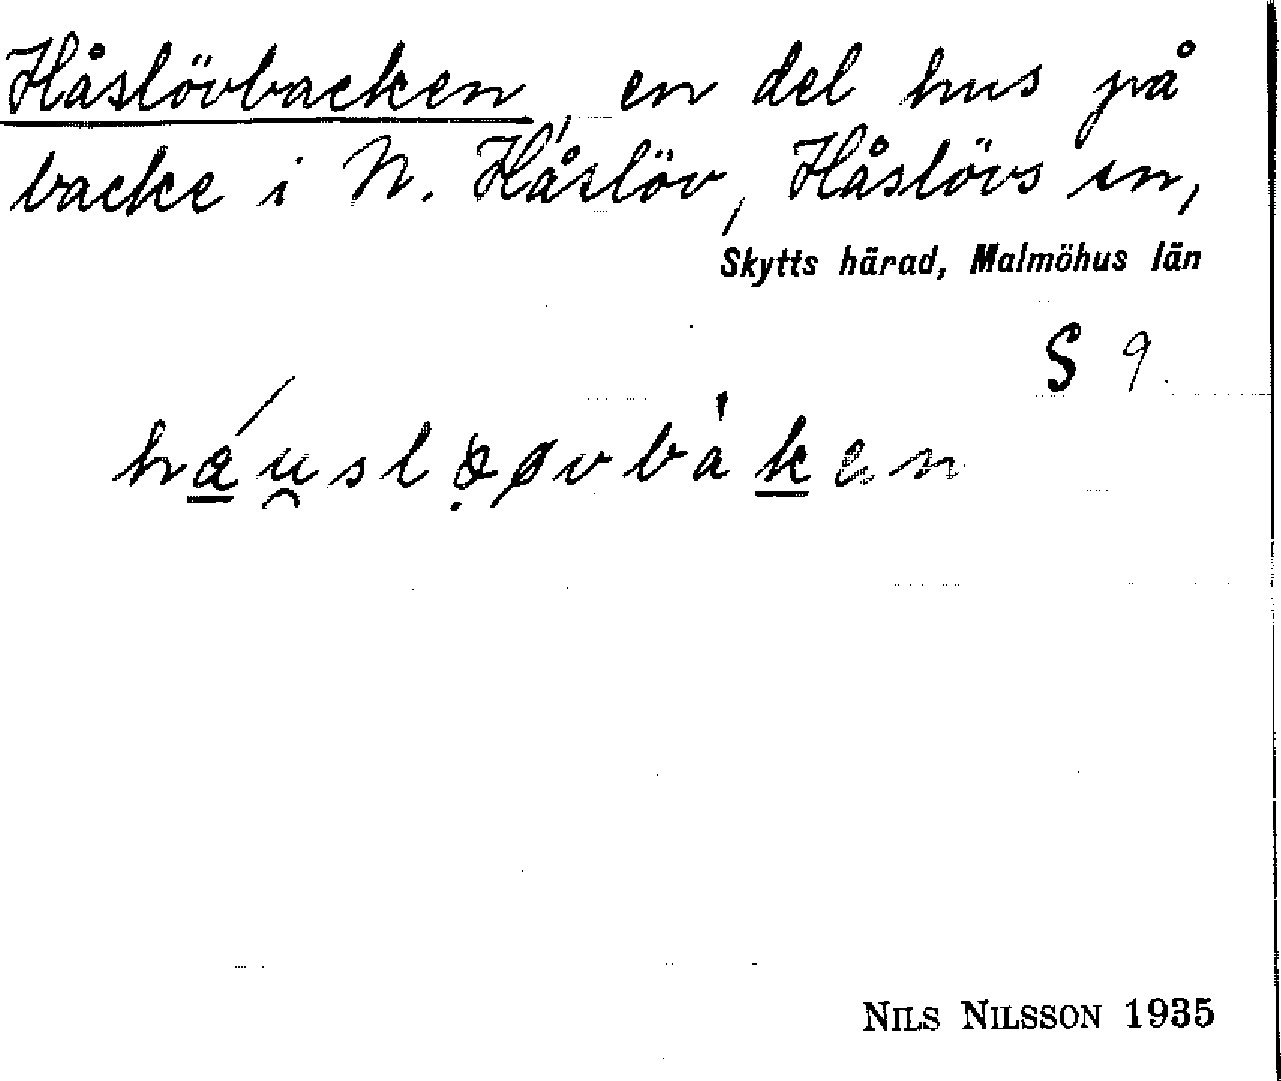 Håslövbacken, en del hus på
backe i N. Håslöv, Håslövs sn,
Skytts härad, Malmöhus län
S 9.
háu̯slo̤øvbáken
NILS NILSSON 1935